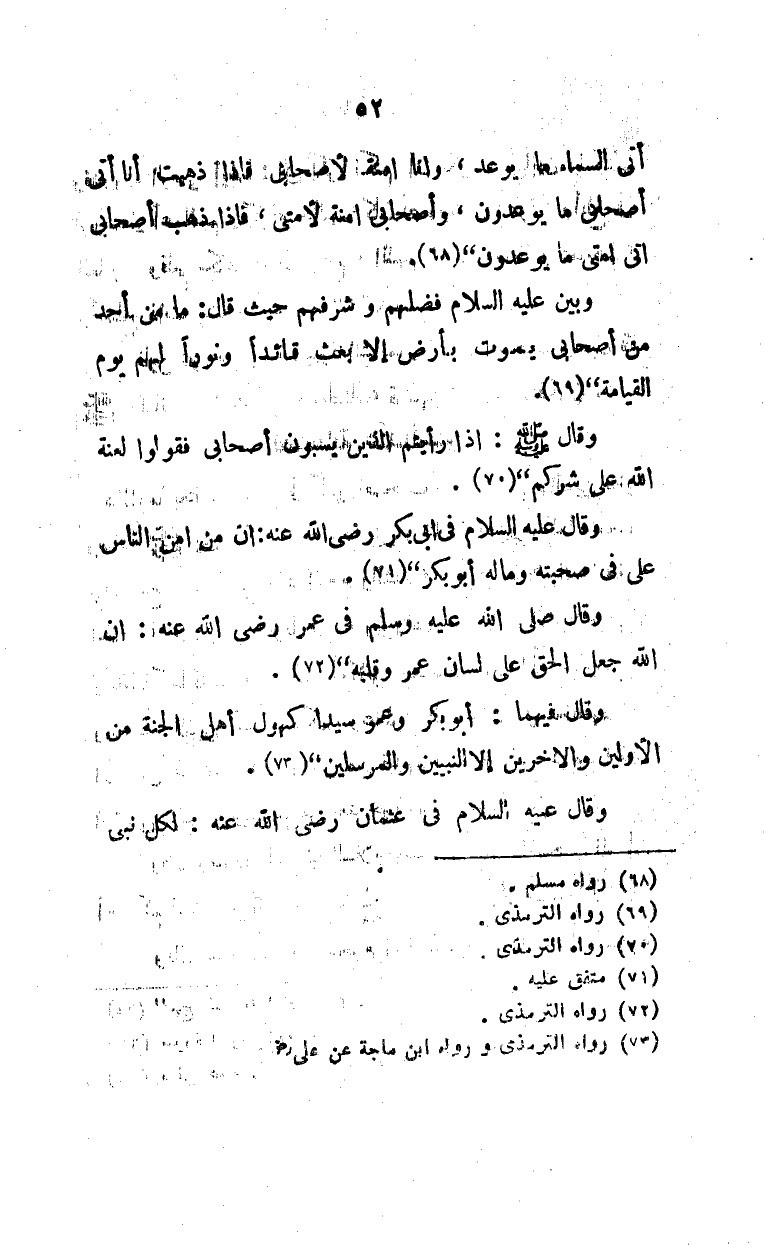 ٥٢
أتى السماء ما يوعد ، وانا امنة لأصحابى فاذا ذهبت أنا أتى
أصحابى ما يوعدون ، وأصحابى امنة لأمتى ، فاذا ذهب أصحابى
اتى امتى ما يوعدون“(٦٨).
وبين عليه السلام فضلهم و شرفهم حيث قال: ما من أحد
من أصحابى يموت بأرض إلا بعث قائداً ونوراً لهم يوم
القيامة“(٦٩).
وقال ﷺ : اذا رأيتم الذين يسبون أصحابى فقولوا لعنة
الله على شركم“(٧٠) .
وقال عليه السلام فى ابى بكر رضى الله عنه: ان من امن الناس
على فى صحبته وماله أبوبكر“(٧١) .
وقال صلى الله عليه وسلم فى عمر رضى الله عنه : ان
الله جعل الحق على لسان عمر وقلبه“(٧٢) .
وقال فيهما : أبوبكر وعمر سيدا كهول أهل الجنة من
الأولين والاخرين إلا النبيين والمرسلين“(٧٣) .
وقال عيه السلام فى عثمان رضى الله عنه : لكل نبى
(٦٨) رواه مسلم .
(٦٩) رواه الترمذى .
(٧٠) رواه الترمذى .
(٧١) متفق عليه .
(٧٢) رواه الترمذى .
(٧٣) رواه الترمذى و رواه ابن ماجة عن على رض